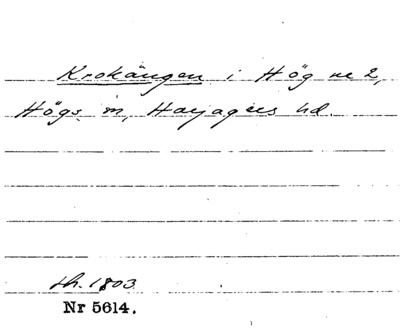 Krokängen i Hög nr 2,
Högs sn, Harjagers hd.
sk. 1803
Nr 5614.